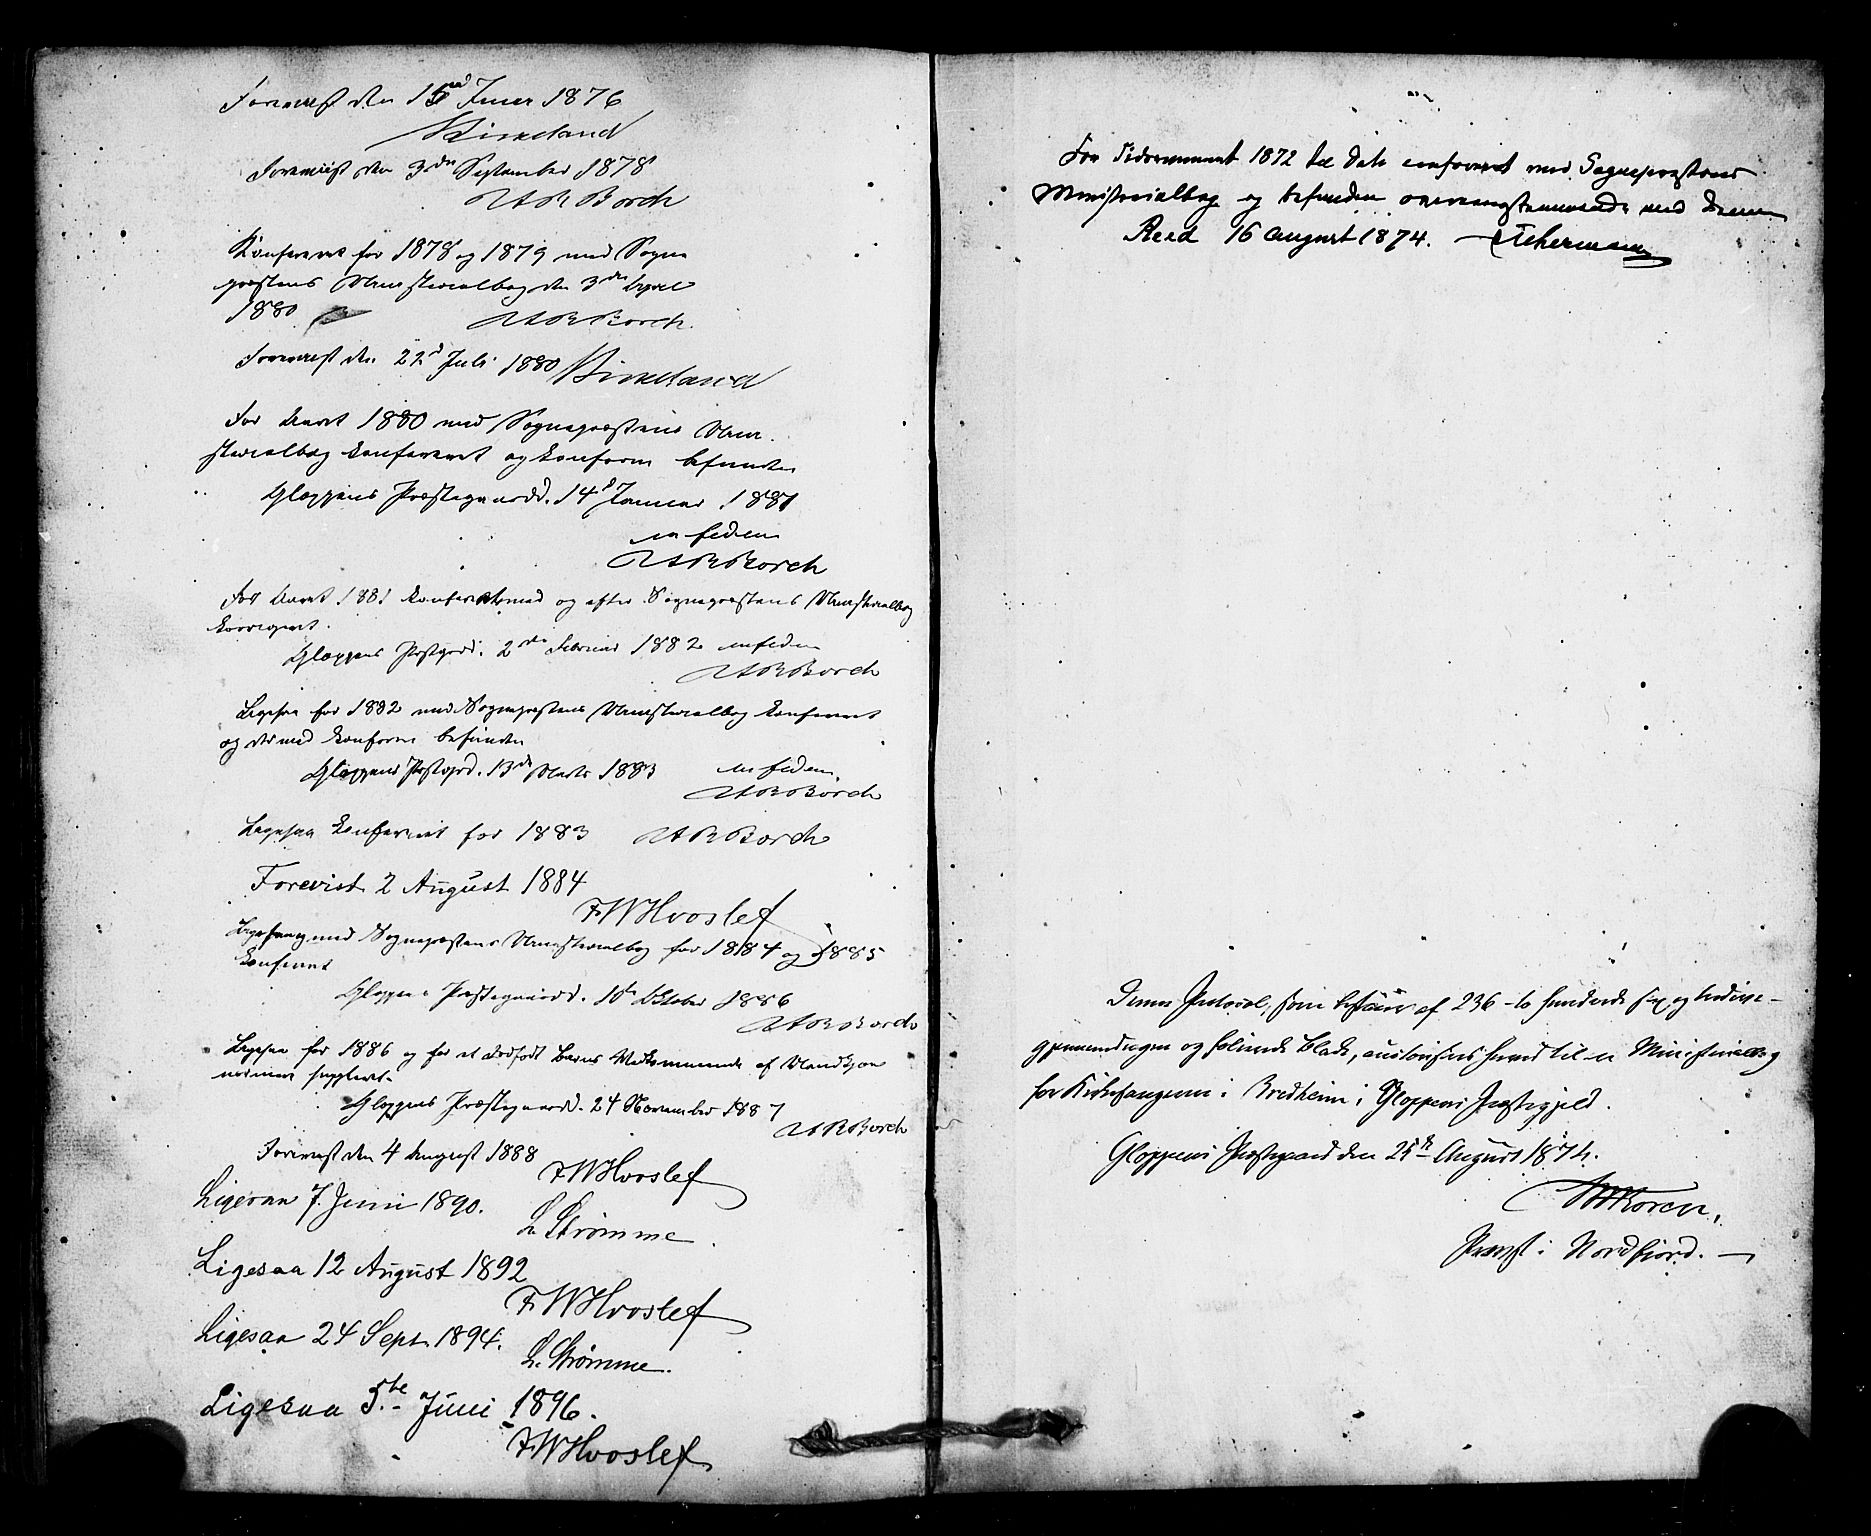 Forevist den 15 Juni 1876
Birkeland
Forevist den 3die September 1878
H A R Borch
Konfereret for 1878 og 1879 med Sogne
præstens Ministerialbog den 3die April
1880 H A R Borch.
Forevist den 22d Juli 1880 Birkeland
For Aaret 1880 med Sognepræstens Mini-
sterialbog konfereret og konform befunden
Gloppens Præstegaard. 14d Januar 1881
H A R Borch
For Aaret 1881 konfereret med og efter Sognepræstens Ministerialbog
korrigeret.
Gloppens Præstgrd. 2den Februar 1882
H A R Borch
Ligesaa for 1882 med Sognepræstens Ministerialbog konfereret
og dermed konform befunden
Gloppens Præstgrd. 13de Marts 1883
H A R Borch
Ligesaa konfereret for 1883 H A R Borch
Forevist 2 August 1884
F W Hvoslef
med Sognepræstens Ministerialbog for 1884 og 1885
konfereret
Gloppens Præstegaard. Oktober 1886
H A R Borch
Ligesaa for 1886 og for et dødfødt Barns Vedkommende af Mandkjøn
suppleret.
Gloppens Præstegaard. 24 November 1887
H A R Borch
Forevist den 4 August 1888
F W Hvoslef
Ligesaa 7. Juni 1890.
L. Strømme.
Ligesaa 12 August 1892
F W Hvoslef
Ligesaa 24 Sept. 1894.
L. Strømme.
Ligesaa 5.te Juni 1896.
F W Hvoslef
For Tidsrummet 1872 til Dato confereret med Sognepræstens
Ministerialbog og befunden overensstemmende med denne
Reed 16 August 1874.
Denne Protocol, som bestaar af 236 - to hundrede sex og tredive -
gjennemdragne og folierede Blade, autoriseres herved til en Ministerialbog
for Kirkesangeren i Bredheim i Gloppens Præstegjeld.
Gloppens Præstegaard den 25de August 1874.
Koren,
Provst i Nordfjord. —